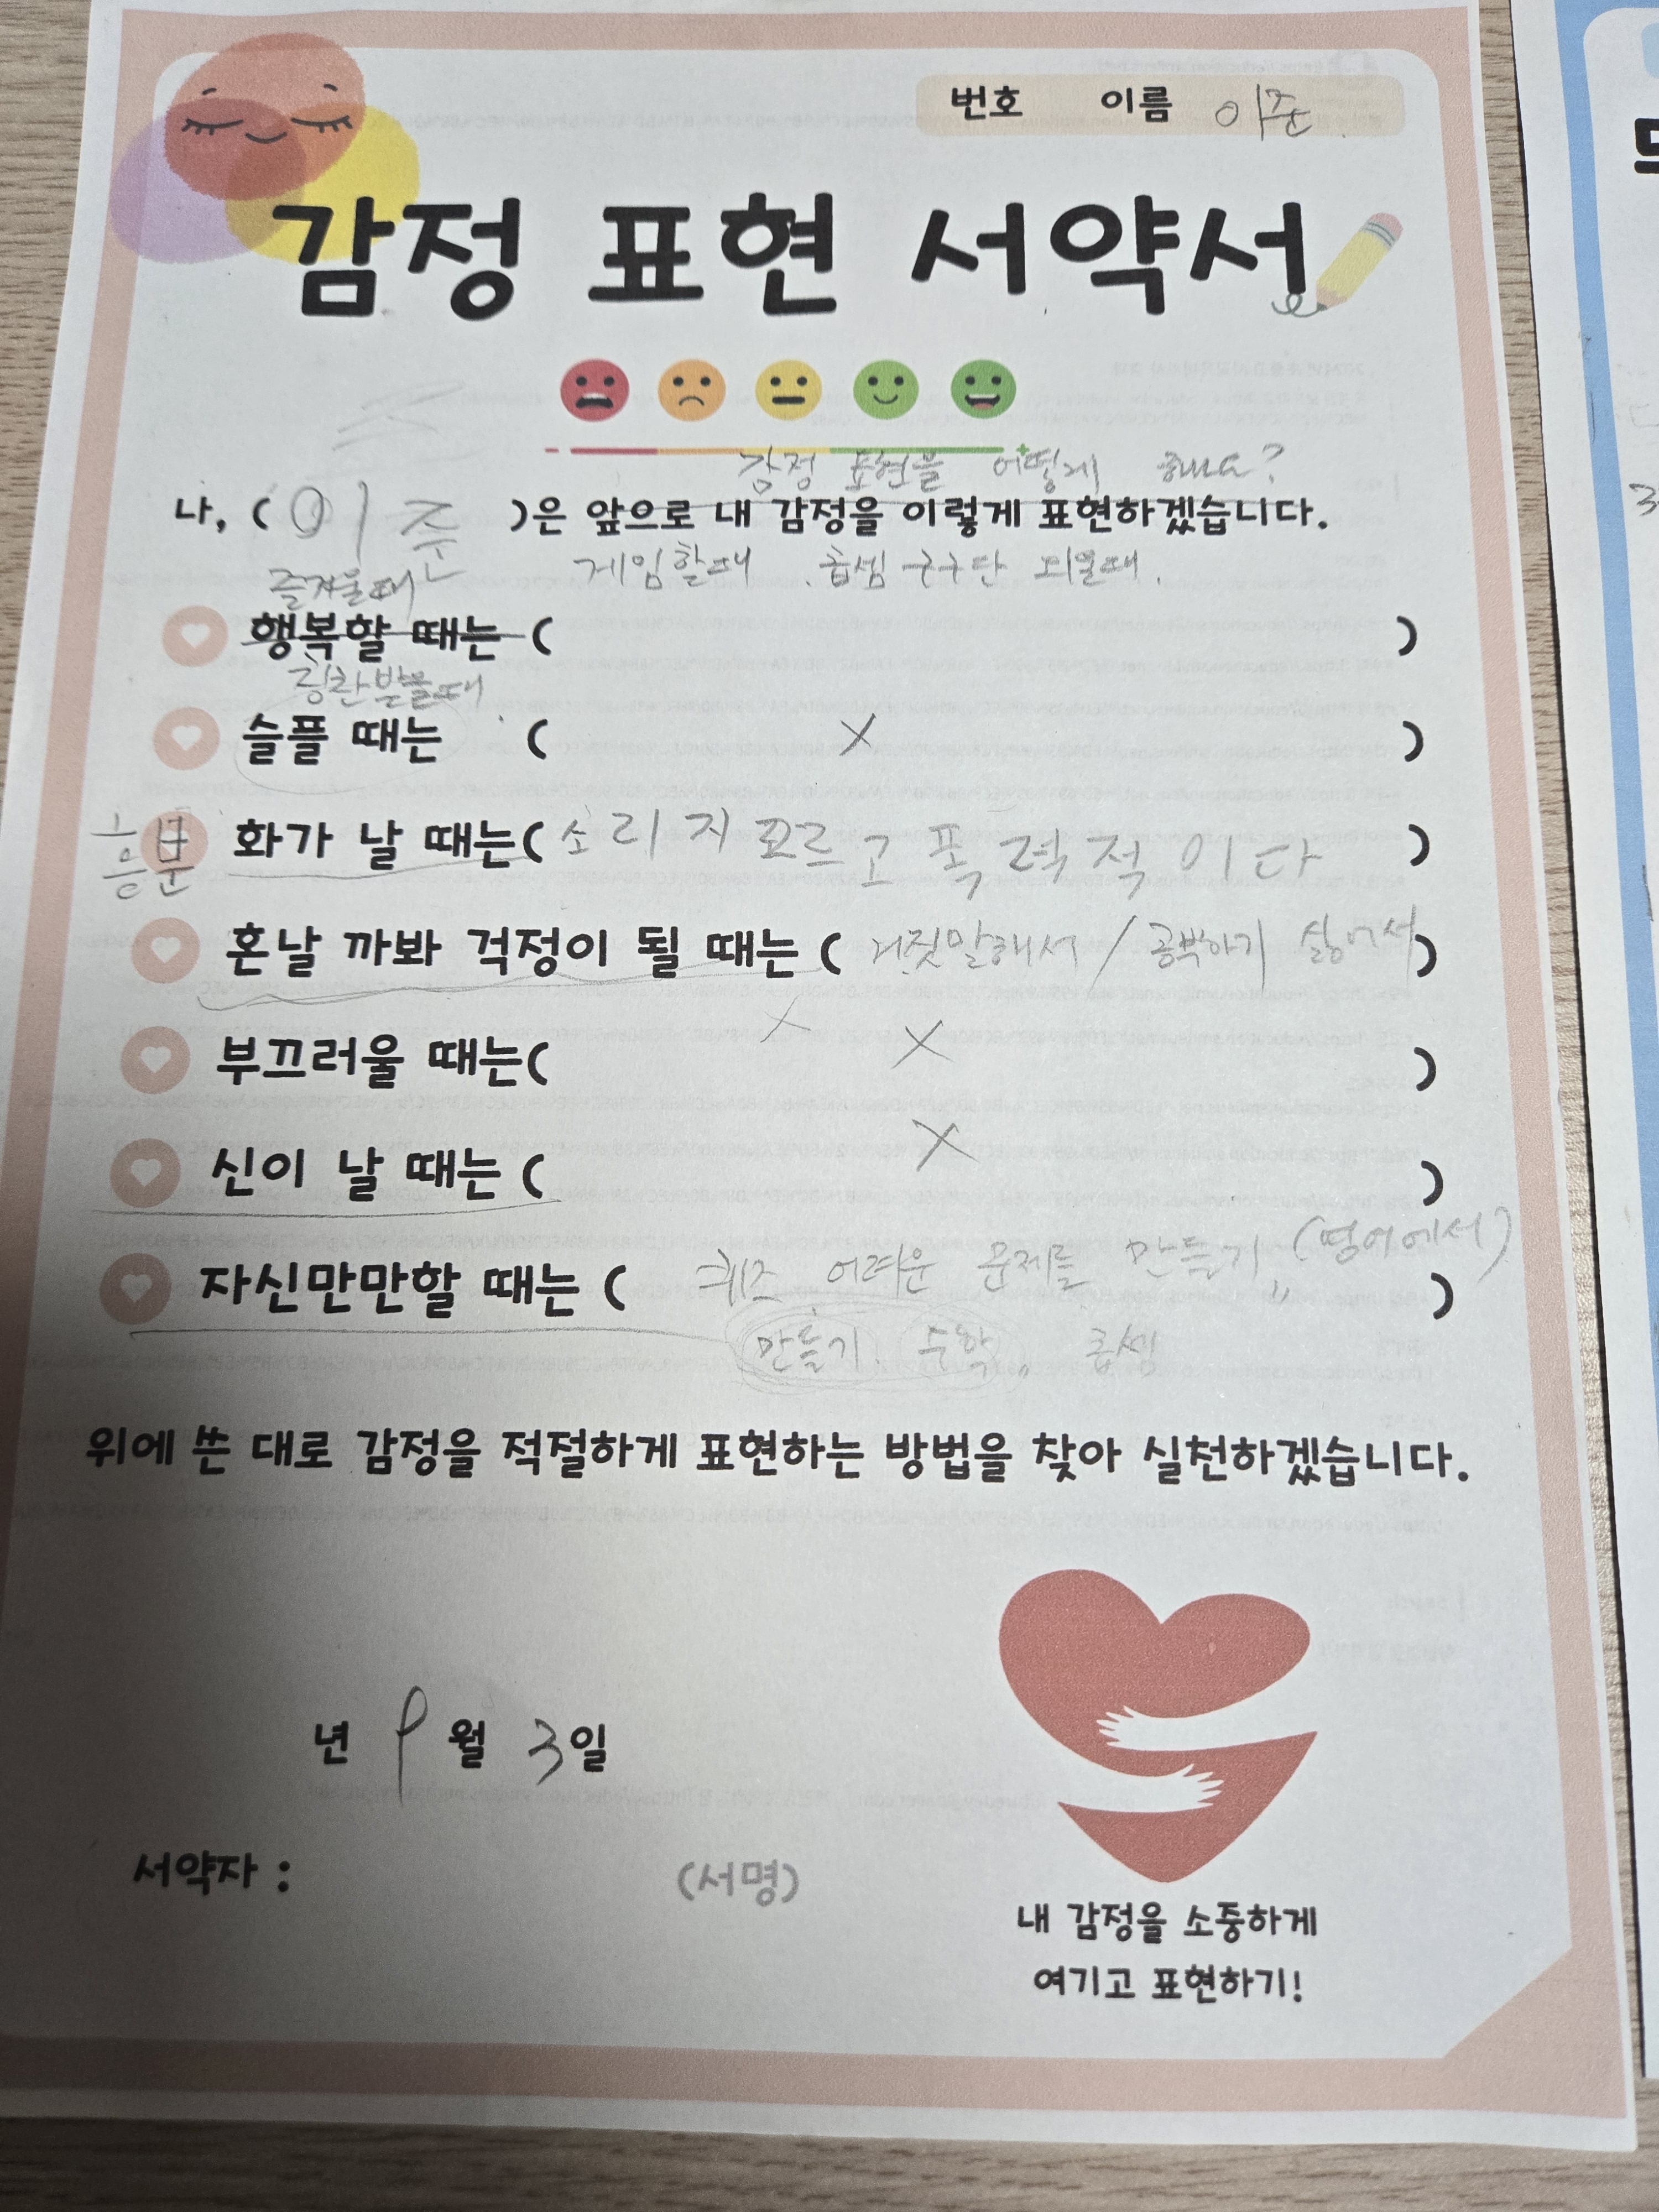 번호 이름 이준
감정 표현 서약서
감정 표현을 어떻게 해요?
나, ( 이준 )은 앞으로 내 감정을 이렇게 표현하겠습니다.
즐거울때 게임할때 . 곱셈 구구단 외울때.
행복할 때는 ( )
칭찬받을때
슬플 때는 ( X )
흥분 화가 날 때는( 소리지르고 폭력적이다 )
혼날 까봐 걱정이 될 때는 ( 거짓말해서 / 공부하기 싫어서 )
X
부끄러울 때는( X )
신이 날 때는 ( X )
자신만만할 때는 ( 퀴즈 어려운 문제를 만들기,, (영어에서) )
만들기, 수학,, 곱셈
위에 쓴 대로 감정을 적절하게 표현하는 방법을 찾아 실천하겠습니다.
년 9월 3일
서약자 : (서명)
내 감정을 소중하게
여기고 표현하기!